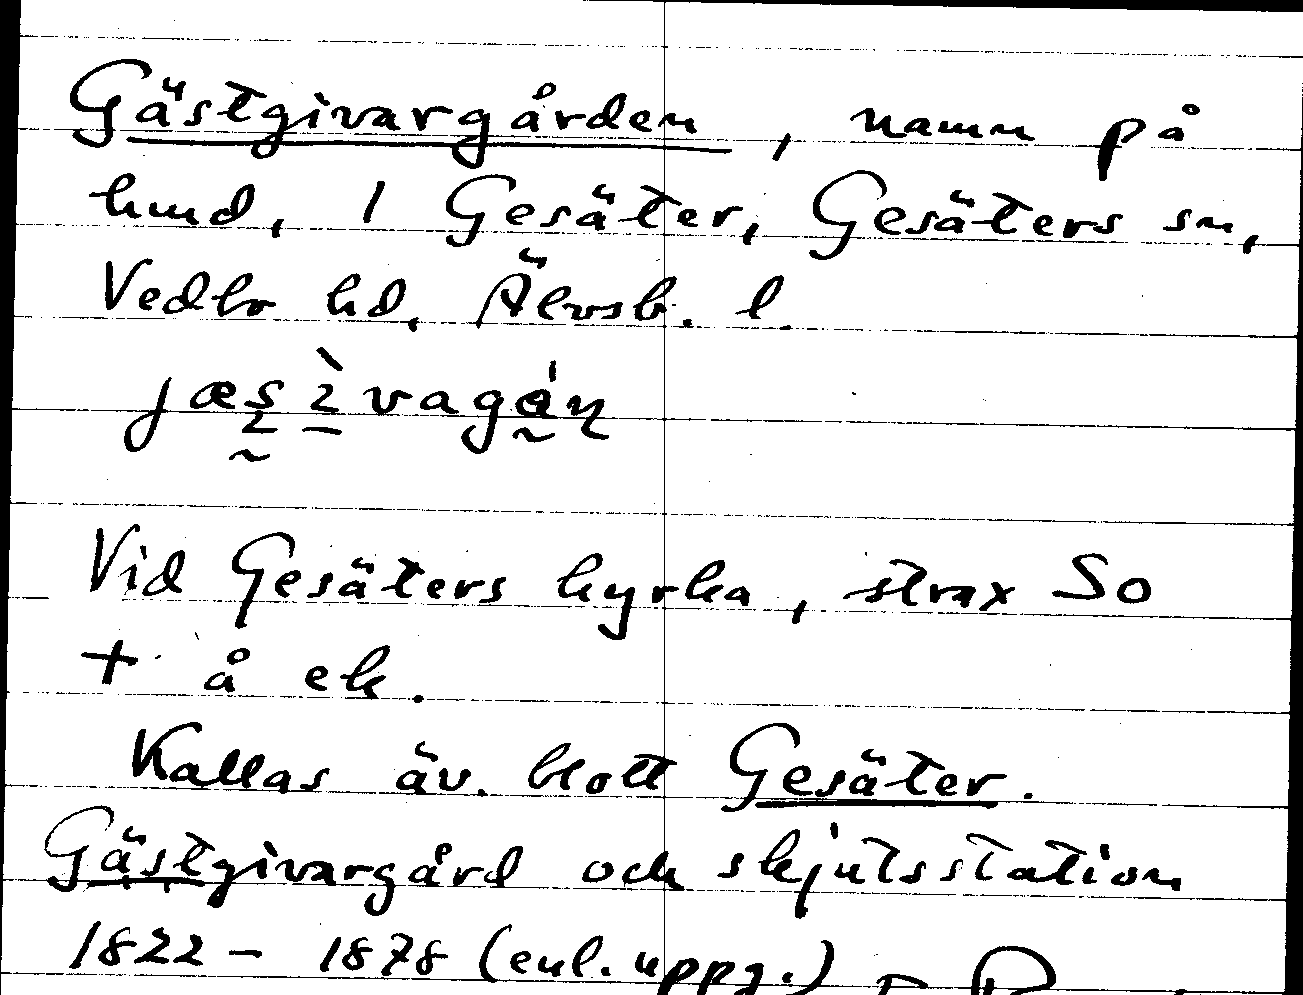 Gästgivargården, namn på
hmd, 1 Gesäter, Gesäters sn,
Vedbo hd, Älvsb. l.
Vid Gesäters kyrka, strax So
+ å ek.
Kallas äv. blott Gesäter.
Gästgivargård och skjutsstation
1822 - 1878 (enl. uppg.)